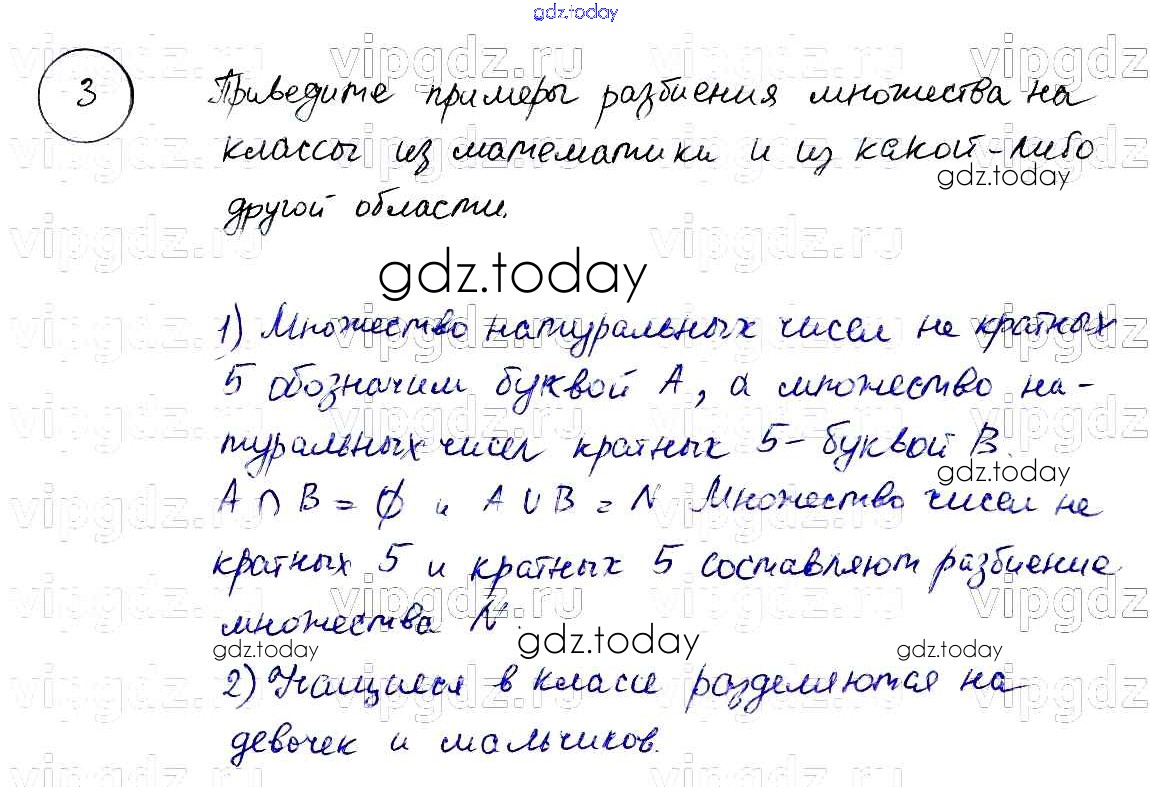 gdz.today
3
Приведите примеры разбиения множества на
классы из математики и из какой-либо
gdz.today
другой области.
gdz.today
1) Множество натуральных чисел не кратных
5 обозначим буквой A, а множество на-
туральных чисел кратных 5 - буквой B.
gdz.today
A ∩ B = ∅ и A ∪ B = N. Множество чисел не
кратных 5 и кратных 5 составляют разбиение
множества N.
gdz.today
gdz.today
gdz.today
2) Учащиеся в классе разделяются на
девочек и мальчиков.
vipgdz.ru